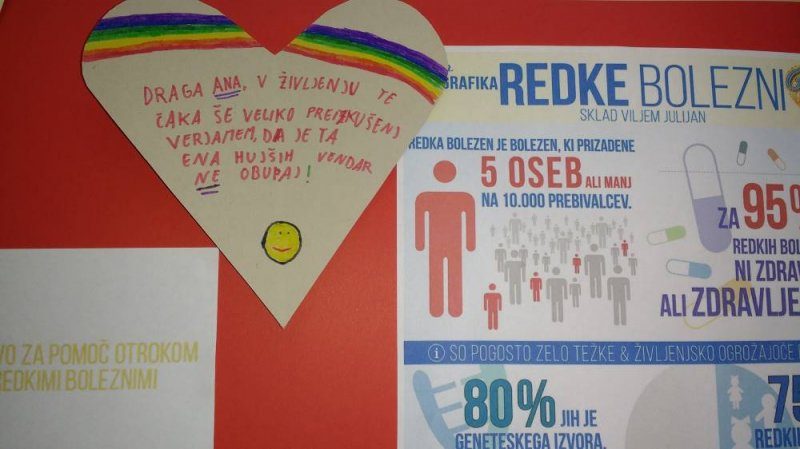 DRAGA ANA, V ŽIVLJENJU TE
ČAKA ŠE VELIKO PREIZKUŠENJ
VERJAMEM, DA JE TA
ENA HUJŠIH VENDAR
NE OBUPAJ!
GRAFIKA REDKE BOLEZNI
SKLAD VILJEM JULIJAN
REDKA BOLEZEN JE BOLEZEN, KI PRIZADENE
5 OSEB ALI MANJ
NA 10.000 PREBIVALCEV.
ZA 95%
REDKIH BOL
NI ZDRAV
ALI ZDRAVLJE
VO ZA POMOČ OTROKOM
REDKIMI BOLEZNIMI
SO POGOSTO ZELO TEŽKE & ŽIVLJENJSKO OGROŽAJOČE
80% JIH JE
GENETSKEGA IZVORA.
75
REDKI